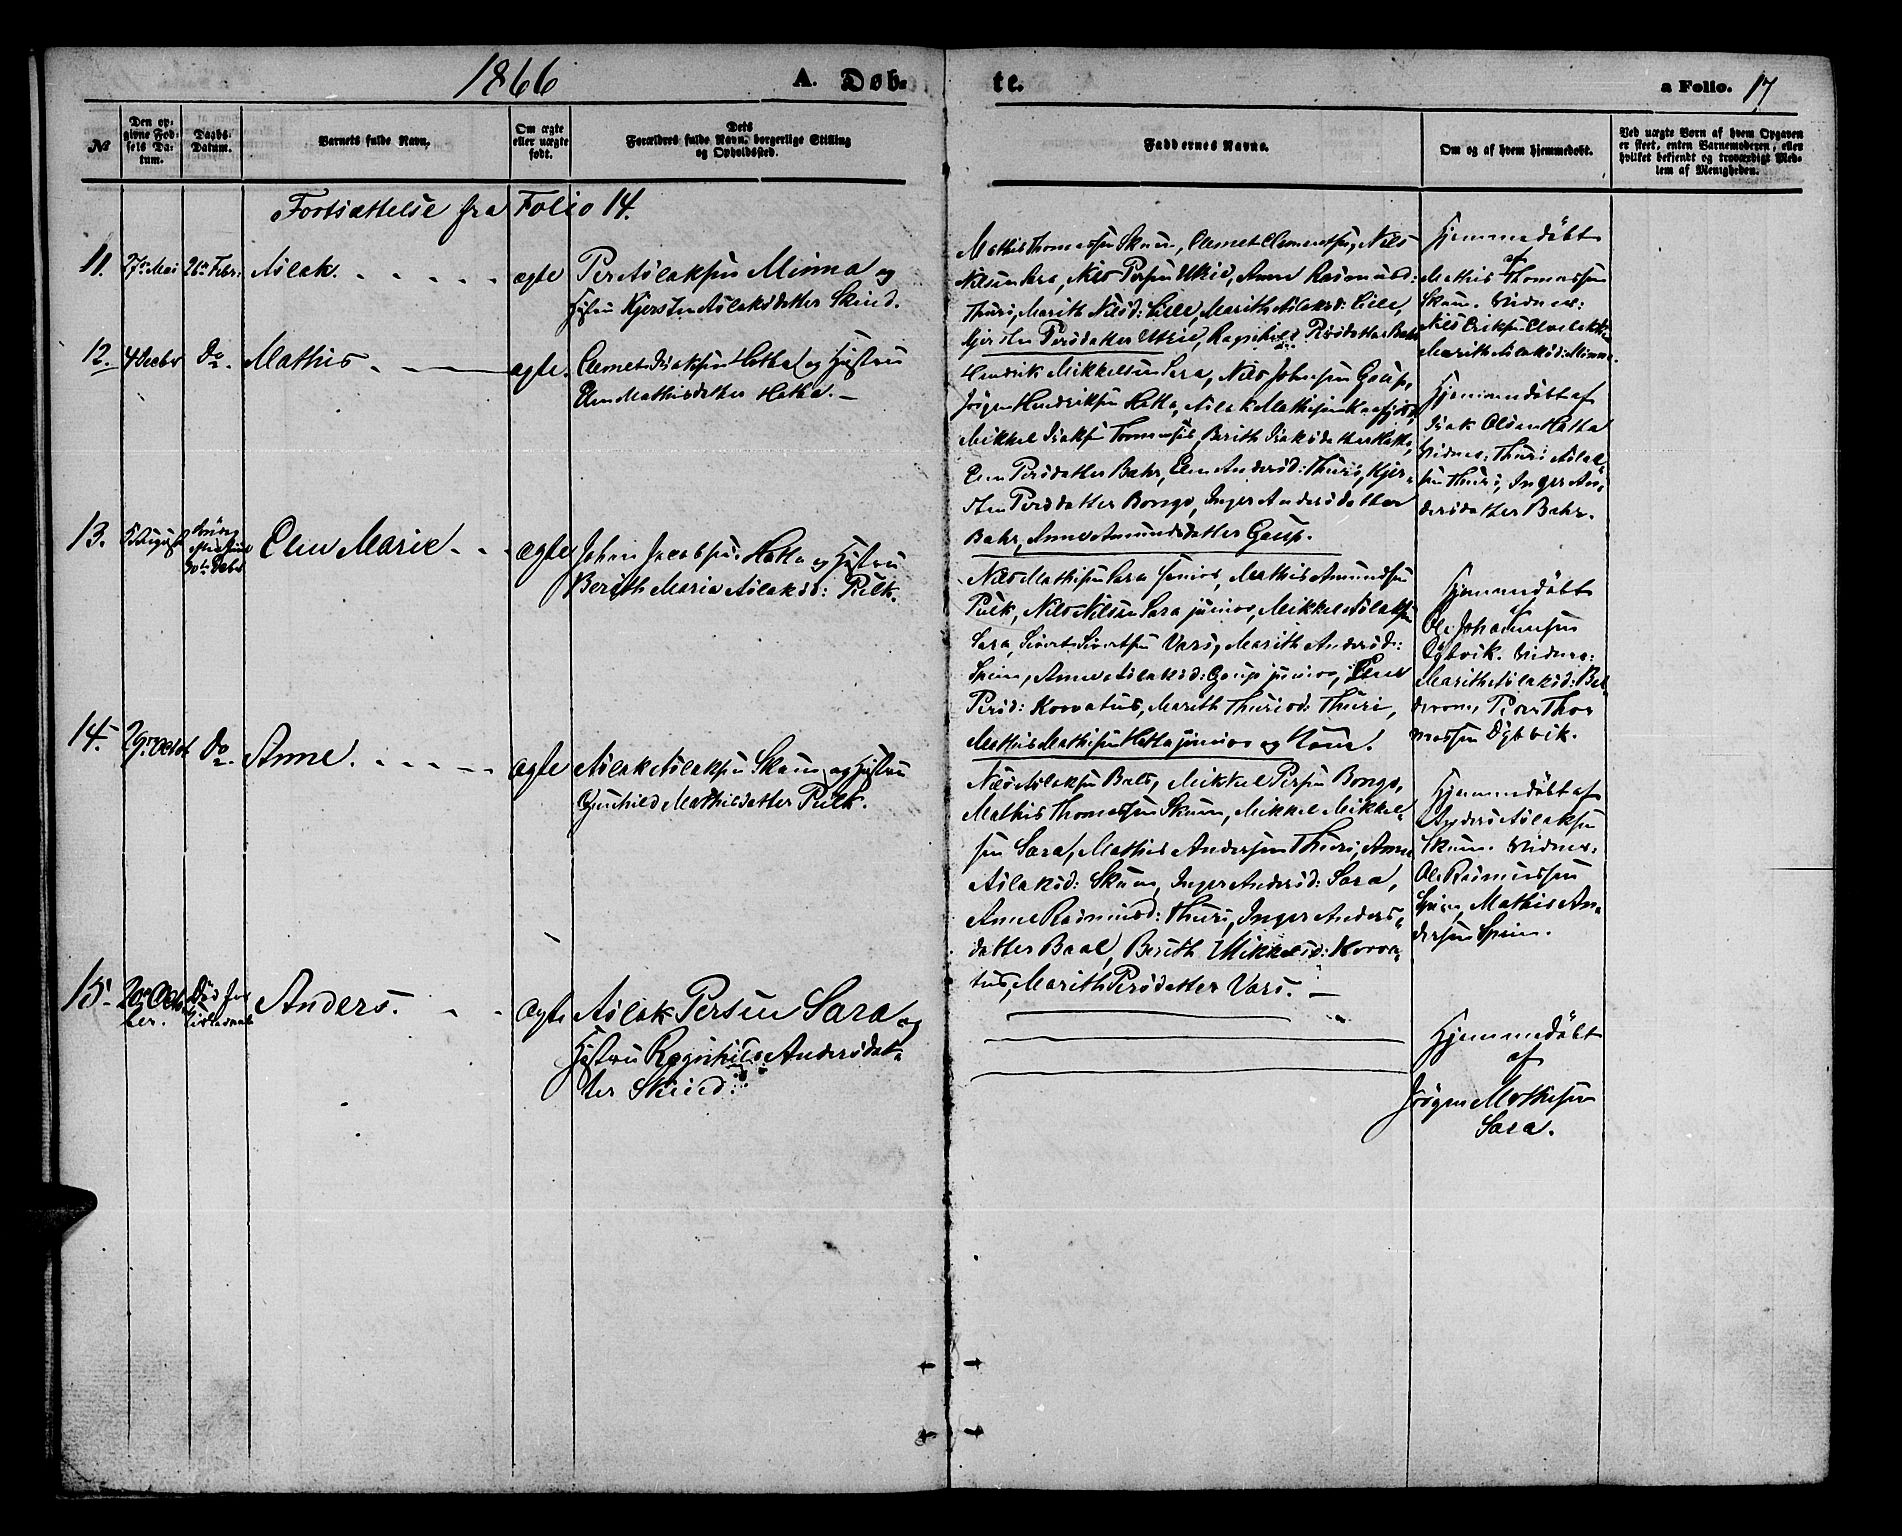 1866
A. Døb-
te.
a Folio. 17
№
Den op-
givne Fød-
sels Da-
tum.
Daabs-
Datum.
Barnets fulde Navn.
Om ægte
eller uægte
født.
Dets
Forældres fulde Navn, borgerlige Stilling
og Opholdssted.
Faddernes Navne.
Om og af hvem hjemmedøbt.
Ved uægte Børn af hvem Opgaven
er skeet, enten Barnemoderen, eller
hvilket bekjendt og troværdigt Med-
lem af Menigheden.
Fortsættelse fra Folio 14.
11.
27de Mai
26de Febr:
Aslak.
ægte
Per Aslaksen Minna og
Hustru Kjersten Aslaksdatter Skind.
Mathis Thomassen Skum, Clemet Clemetsen, Nils
Nilsen Sara, Nils Persen Utsie, Anne Rasmusd:
Thuri, Marith Nilsd: Lille, Marith Aslaksd: Lille,
Kjersten Persdatter Utsie, Ragnhild Persdatter Bahr
Hjemmedöbt
af
Mathis Thomassen
Skum. Vidner:
Nils Eriksen
Marith Aslaksd: Minna.
12.
4 Decbr
Do.
Mathis
ægte.
Clemet Isaksen Hætta og Hustru
Elen Mathisdatter Hætta.
Hendrik Mikkelsen Sara, Nils Johnsen Gaup,
Jörgen Hendriksen Hætta, Aslak Mathisen Kaafjord,
Mikkel Isaksen Tornensis, Berith Isaksdatter Hætta,
Elen Persdatter Bahr, Elen Andersd: Thuri, Kjer-
sten Persdatter Bongo, Inger Andersdatter
Bahr, Anne Amundsdatter Gaup.
Hjemmedöbt af
Isak Olsen Hætta
Vidner: Thuri Aslak-
sen Thuri, Inger An-
dersdatter Bahr.
13.
5 August
30te Decbr
Elen Marie
ægte
John Jacobsen Hætta og Hustru
Berith Maria Aslaksd: Pulk.
Nils Mathisen Sara Junior, Mathis Amundsen
Pulk, Nils Nilsen Sara junior, Mikkel Aslaksen
Sara, Sivert Sivertsen Vars, Marith Andersd:
Spein, Anne Aslaksd: Gaup junior, Elen
Persd: Korvatus, Marith Thurisd: Thuri,
Mathis Mathisen Hætta junior og Kone.
Hjemmedöbt
af
Ole Johannesen
Dybvik. Vidner:
Marith Aslaksd:
Peer Tho-
massen Dybvik.
14.
29de Octob
Do.
Anne.
ægte
Aslak Aslaksen Skum og Hustru
Gunhild Mathisdatter Pulk.
Nils Aslaksen Bals, Mikkel Persen Bongo,
Mathis Thomassen Skum, Mikkel Mikkel-
sen Sara, Mathis Andersen Thuri, Anne
Aslaksd: Skum, Inger Andersd: Sara,
Anne Rasmusd: Thuri, Inger Anders-
datter Baal, Berith Mikkelsd: Korva-
tus, Marith Persdatter Vars.
Hjemmedöbt af
Anders Aslaksen
Skum. Vidner:
Ole Rasmussen
Spein, Mathis An-
dersen Spein.
15.
20de Octo-
ber.
Död før
Anders.
ægte
Aslak Persen Sara og
Hustru Ragnhild Andersdat-
ter Skind.
Hjemmedöbt
af
Jörgen Mathisen
Sara.